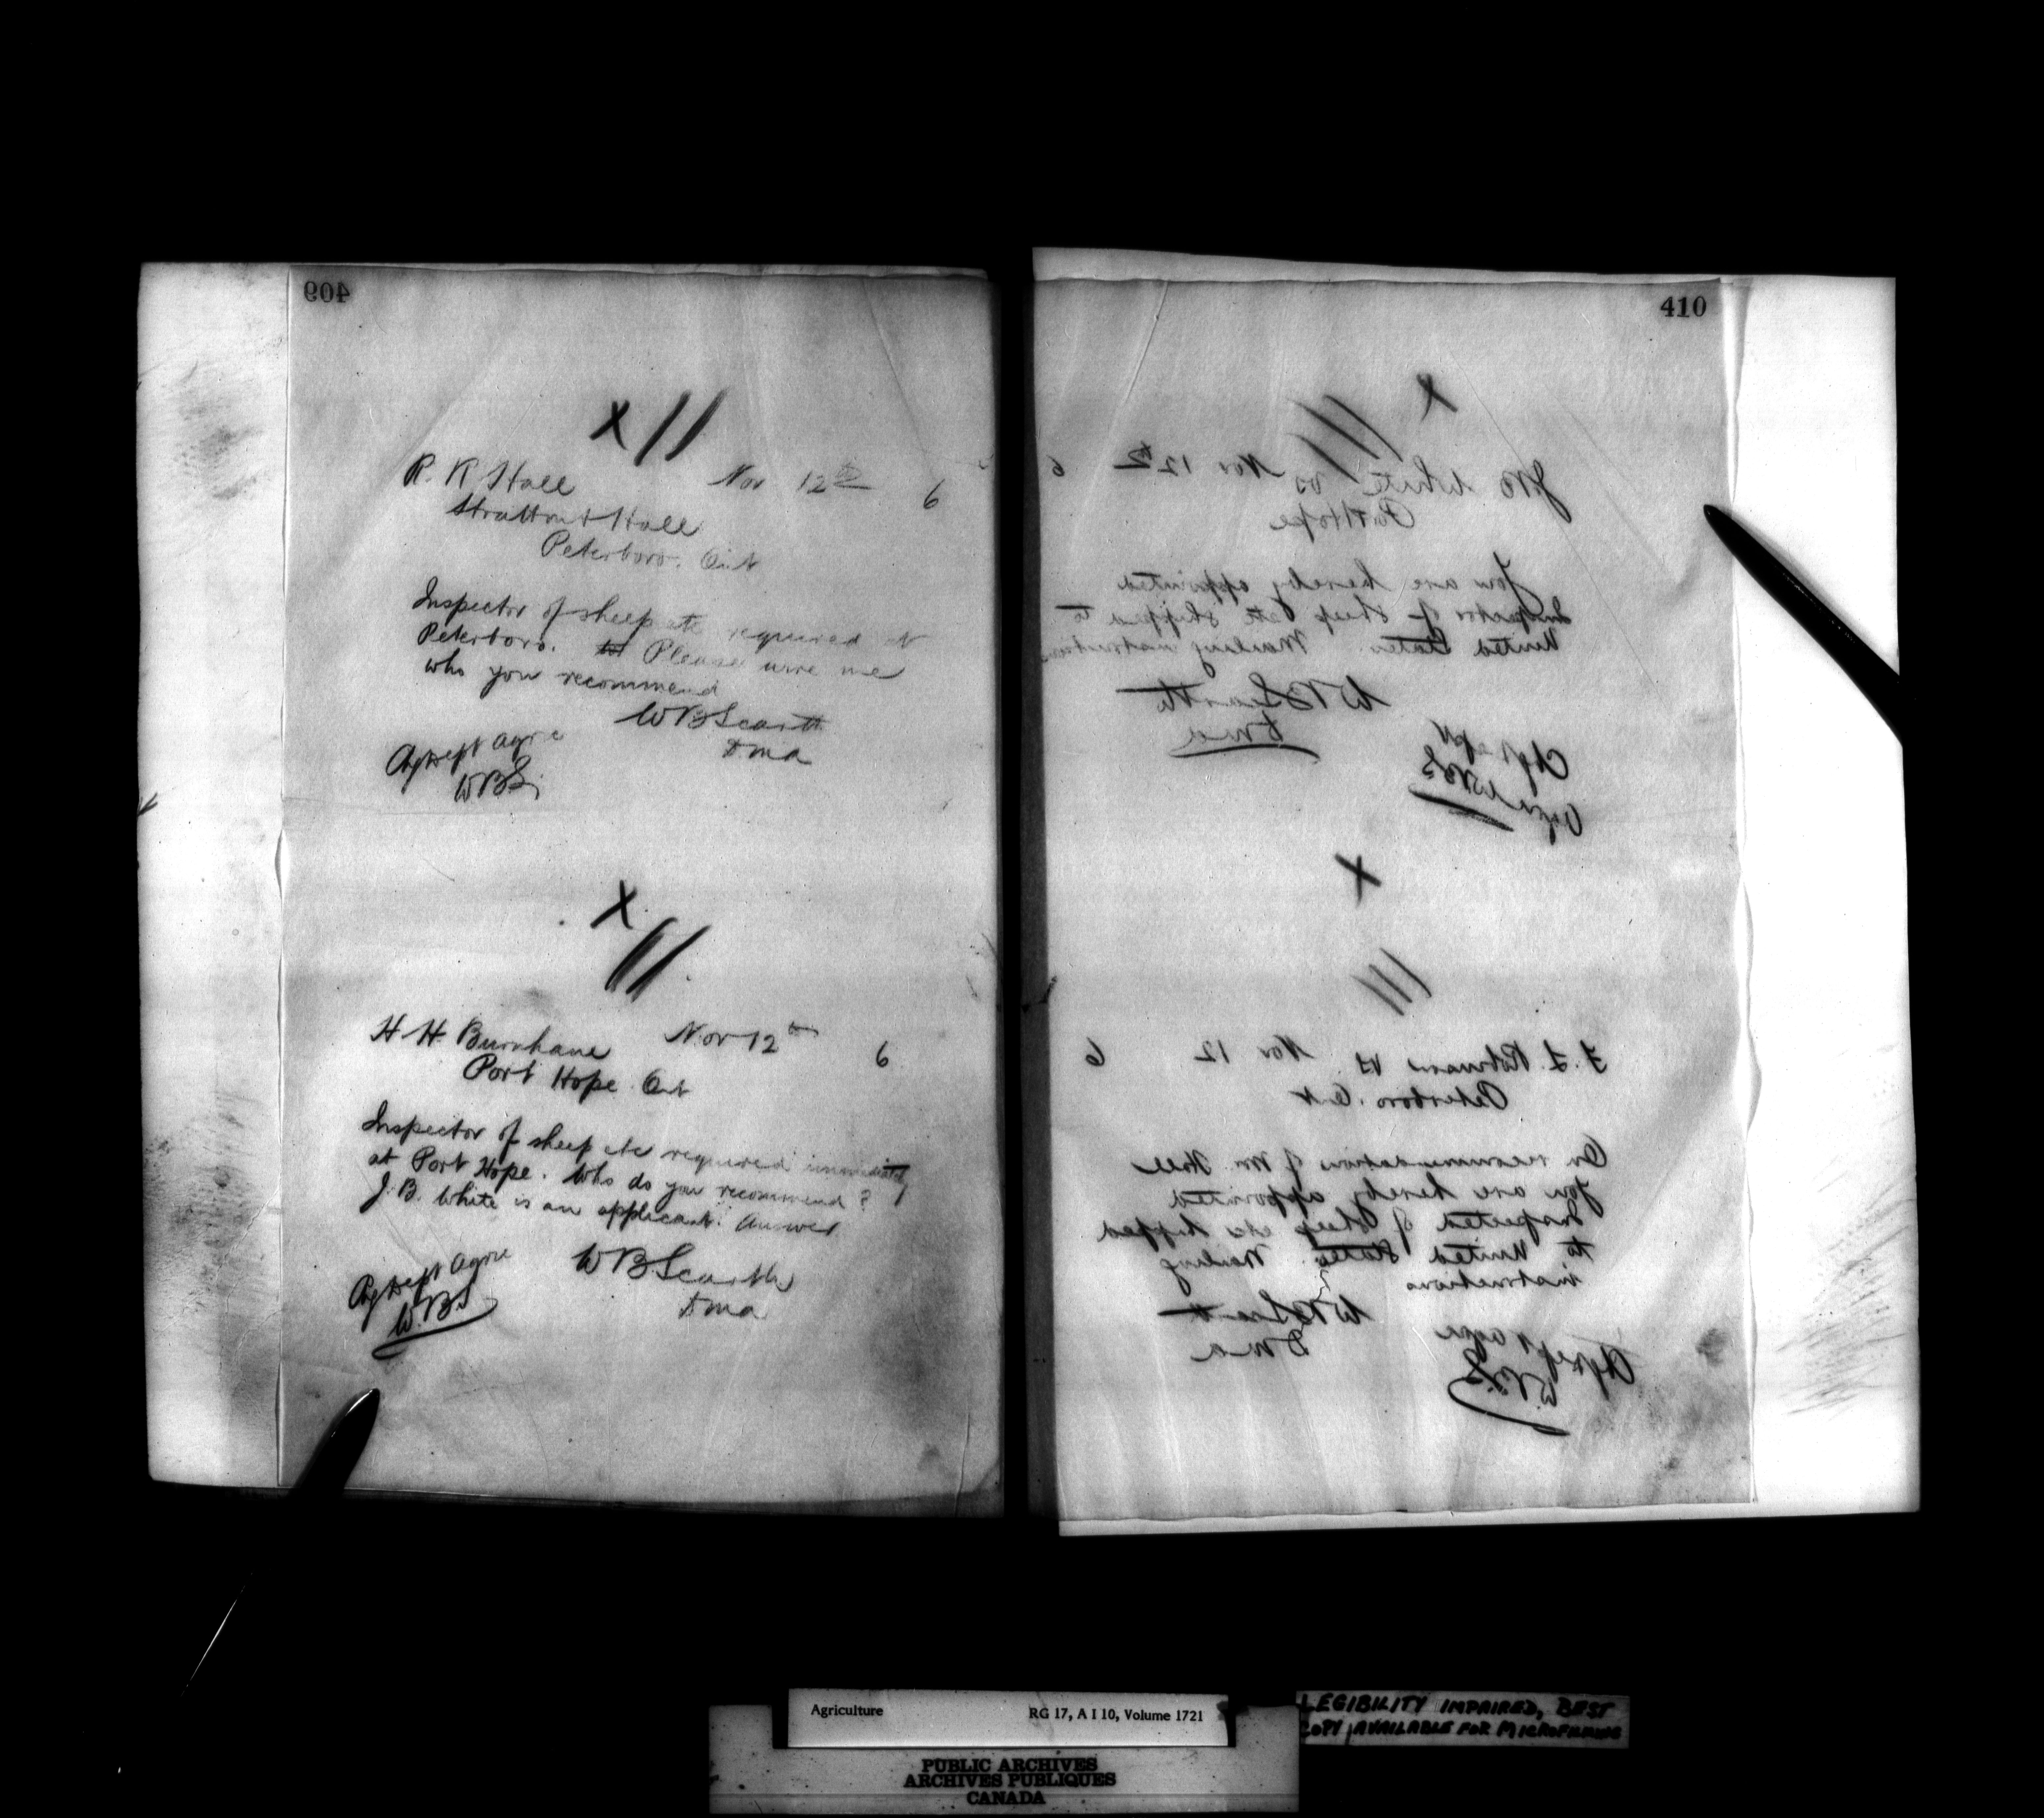 409
x //
R. R. Hall Nov 12th 6
Stratton & Hall
Peterboro. Ont
Inspector of sheep etc required at
Peterboro. Please wire me
who you recommend
W B Scarth
D m a
Chg Dept Agre
WBS
x
///
H H Burnham Nov 12th 6
Port Hope Ont
Inspector of sheep etc required immediately
at Port Hope. Who do you recommend?
J. B. White is an applicant. Answer
W B Scarth
D m a
Chg Dept Agre
W.B.S
410
x
///
J. B. White VS Nov 12th 6
Port Hope
You are hereby appointed
Inspector of Sheep etc shipped to
United States. Mailing instructions
W B Scarth
D m a
Chg Dept
Agre WBS
x
///
F. L. Robinson VS Nov 12 6
Peterboro. Ont
On recommendation of Mr. Hall
you are hereby appointed
Inspected of Sheep etc shipped
to United States. Mailing
instructions
W B Scarth
D m a
Chg Dept Agre
W.B.S
Agriculture RG 17, A I 10, Volume 1721
LEGIBILITY IMPAIRED, BEST
COPY AVAILABLE FOR MICROFILMING
PUBLIC ARCHIVES
ARCHIVES PUBLIQUES
CANADA